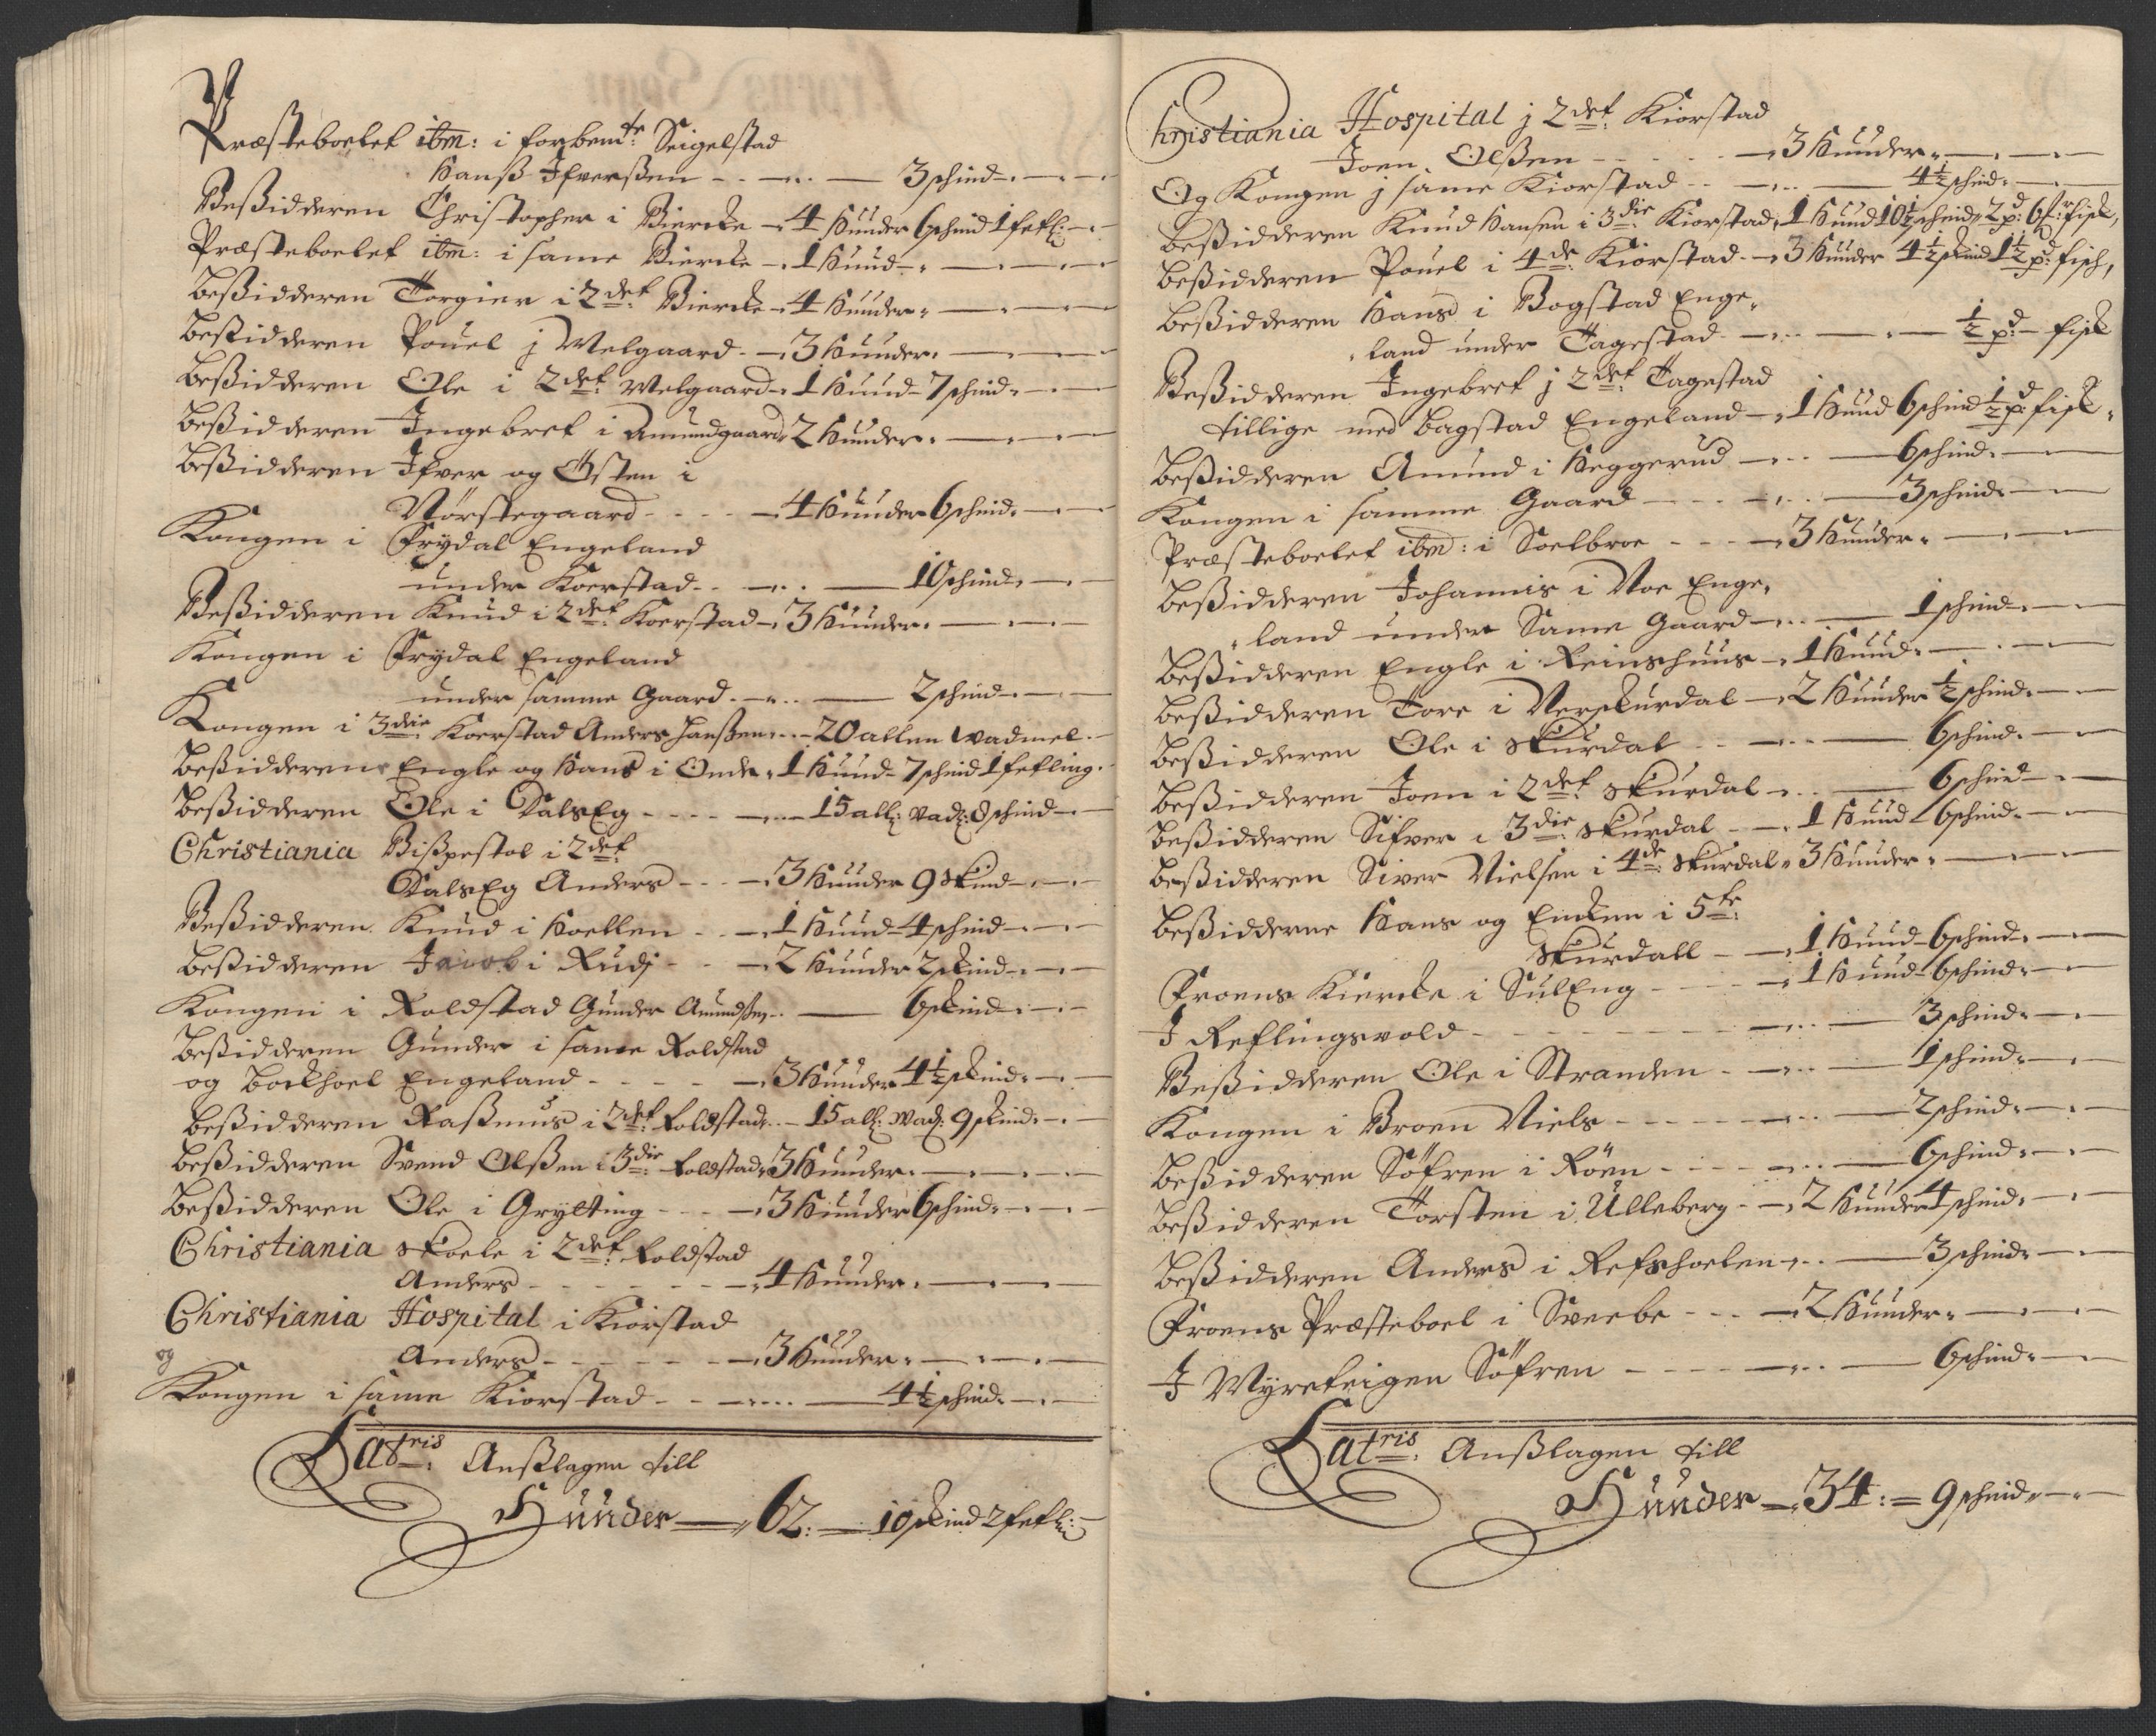 Præsteboelet ibm: i forbemte: Seigelstad
Hanß Ifverßen - - - 3 schind
Beßidderen Christopher i Biercke - 4 Hunder 6 schind 1 fetl:
Præsteboelet ibm: i same Biercke - 1 Hund
Beßidderen Torgier i 2det Biercke - 4 Hunder
Beßidderen Pouel j Melgaard - 3 Hunder
Beßidderen Ole i 2det Melgaard - 1 Hund - 7 schind
Beßidderen Ingebret i Amundgaard 2 Hunder
Beßidderen Ifver og Østen i
Nørstegaard - - - 4 Hunder 6 schind
Kongen i Frydal Engeland
under Koerstad - - - 10 schind
Beßidderen Knud i 2det Koerstad - 3 Hunder
Kongen i Frydal Engeland
under samme Gaard - - - 2 schind
Kongen i 3die Koerstad Anders Hanßen - 20 allen wadmel
Beßidderene Engle og Hans i Onde - 1 Hund - 7 schind 1 fetling
Beßidderen Ole i DalsEg - - - 15 all: vad: 8 schind
Christiania Bißpestol i 2det
DalsEg Anders - - - 3 Hunder 9 skind
Beßidderen Knud i Hoellen - - 1 Hund - 4 schind
Beßidderen Jacob i Rudj - - 2 Hunder 2 skind
Kongen i Roldstad Gunder Amundßen - - 6 skind
Beßidderen Gunder i same Roldstad
og Borkhoel Engeland - - - 3 Hunder 4½ skind
Beßidderen Raßmus i 2det Roldstad - 15 all: Wad: 9 skind
Beßidderen Svend Olßen i 3die Roldstad 3 Hunder
Beßidderen Ole i Grytting - - - 3 Hunder 6 schind
Christiania skoele i 2det Roldstad
Anders - - - 4 Hunder
Christiania Hospital i Kiorstad
Anders - - - 3 Hunder
og
Kongen i same Kiorstad - - - 4½ schind
Latris: Anßlagen till
Hunder - 62: - 10 skind 2 fetl:
Christiania Hospital j 2det Kiorstad
Joen Olßen - - - 3 Hunder
Og Kongen j same Kiorstad - - - 4½ schind
Beßidderen Knud Hansen i 3die Kiorstad 1 Hund 10½ schind 2 pd: 6 fisk
Beßidderen Pouel i 4de Kiorstad - 3 Hunder 4½ skind 1½ pd: fisch
Beßidderen Hans i Bogstad Enge,
land under Tagestad - - - ½ pd: fisk
Beßidderen Ingebret j 2det Tagestad
tillige med Bagstad Engeland - 1 Hund 6 schind ½ pd: fisk
Beßidderen Amund i Heggerud - - - 6 schind
Kongen i samme Gaard - - - 3 schind
Præsteboelet ibm: i Soelbroe - - - 3 Hunder
Beßidderen Johannis i Moe Enge,
land under Same Gaard - - - 1 schind
Beßidderen Engle i Reinshuus - 1 Hund
Beßidderen Tore i Verskurdal - 2 Hunder ½ schind
Beßidderen Ole i skurdal - - - 6 schind
Beßidderen Joen i 2det skurdal - - - 6 schind
Beßidderen Sifver i 3die skurdal - - 1 Hund 6 schind
Beßidderen Siver Nielsen i 4de skurdal 3 Hunder
Beßidderne Hans og Encken i 5te
skurdall - - 1 Hund - 6 schind
Froens Kiercke i SulEng - - - 1 Hund - 6 schind
I Reflingsvold - - - 3 schind
Beßidderen Ole i Stranden - - - 1 schind
Kongen i Broen Niels - - - 2 schind
Beßidderen Søfren i Røen - - - 6 schind
Beßidderen Torsten i Ulleberg - 2 Hunder 4 schind
Beßidderen Anders i Refshoelen - - - 3 schind
Froens Præsteboel i Sveebe - - - 2 Hunder
I Myreteigen Søfren - - - 6 schind
Latris: Anßlagen till
Hunder - 34: = 9 schind